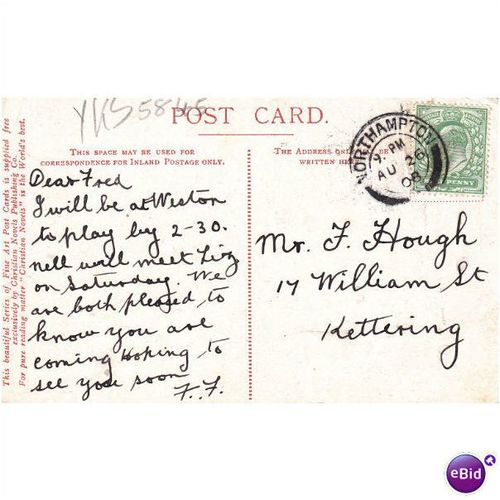 YKS 5845
POST CARD.
THIS SPACE MAY BE USED FOR
CORRESPONDENCE FOR INLAND POSTAGE ONLY.
THE ADDRESS ONLY
WRITTEN HERE
NORTHAMPTON
9. PM
AU 2
08
PENNY
This beautiful Series of Fine Art Post Cards is supplied free
exclusively by Christian Novels Publishing Co.
For pure reading matter "Christian Novels" is the World's best.
Dear Fred
I will be at Weston
to play by 2-30.
nell will meet Lizz
on Saturday. We
are both pleased to
know you are
coming Hoping to
see you soon
F.F.
Mr. F. Hough
17 William St
Kettering
eBid